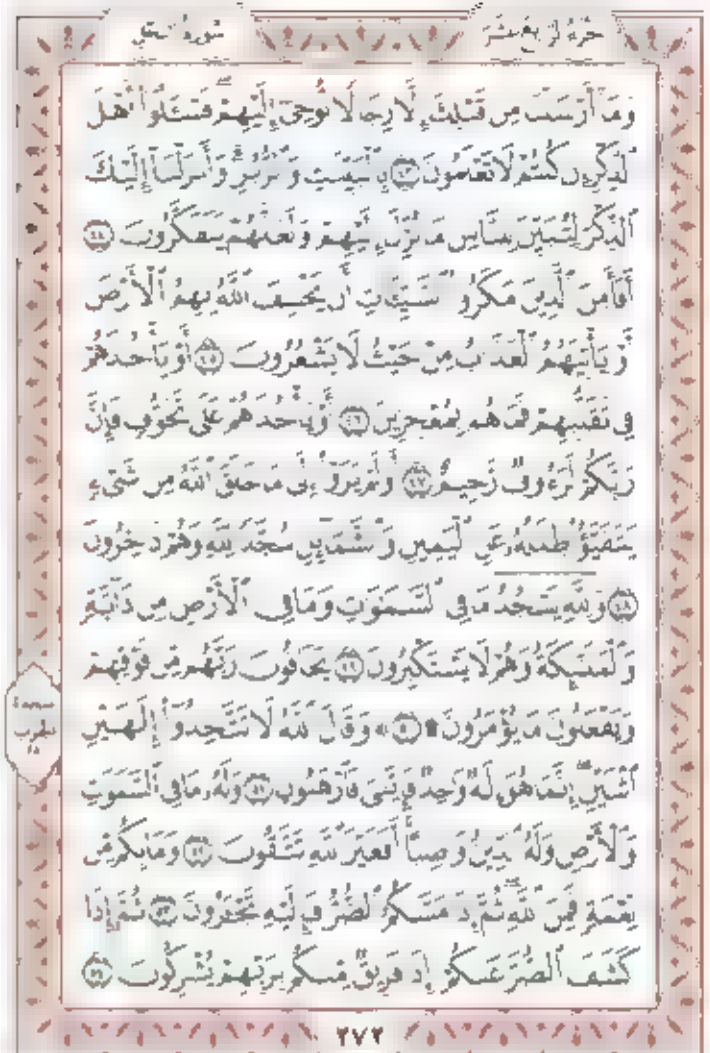 سورة النحل
الجزء الرابع عشر
وَمَا أَرْسَلْنَا مِن قَبْلِكَ إِلَّا رِجَالًا نُّوحِي إِلَيْهِمْ ۚ فَسْـَٔلُوٓا۟ أَهْلَ
ٱلذِّكْرِ إِن كُنتُمْ لَا تَعْلَمُونَ ٤٣ بِٱلْبَيِّنَـٰتِ وَٱلزُّبُرِ ۗ وَأَنزَلْنَآ إِلَيْكَ
ٱلذِّكْرَ لِتُبَيِّنَ لِلنَّاسِ مَا نُزِّلَ إِلَيْهِمْ وَلَعَلَّهُمْ يَتَفَكَّرُونَ ٤٤
أَفَأَمِنَ ٱلَّذِينَ مَكَرُوا۟ ٱلسَّيِّـَٔاتِ أَن يَخْسِفَ ٱللَّهُ بِهِمُ ٱلْأَرْضَ
أَوْ يَأْتِيَهُمُ ٱلْعَذَابُ مِنْ حَيْثُ لَا يَشْعُرُونَ ٤٥ أَوْ يَأْخُذَهُمْ
فِى تَقَلُّبِهِمْ فَمَا هُم بِمُعْجِزِينَ ٤٦ أَوْ يَأْخُذَهُمْ عَلَىٰ تَخَوُّفٍ فَإِنَّ
رَبَّكُمْ لَرَءُوفٌ رَّحِيمٌ ٤٧ أَوَلَمْ يَرَوْا۟ إِلَىٰ مَا خَلَقَ ٱللَّهُ مِن شَىْءٍ
يَتَفَيَّؤُا۟ ظِلَـٰلُهُۥ عَنِ ٱلْيَمِينِ وَٱلشَّمَآئِلِ سُجَّدًا لِّلَّهِ وَهُمْ دَٰخِرُونَ
٤٨ وَلِلَّهِ يَسْجُدُ مَا فِى ٱلسَّمَـٰوَٰتِ وَمَا فِى ٱلْأَرْضِ مِن دَآبَّةٍ
وَٱلْمَلَـٰٓئِكَةُ وَهُمْ لَا يَسْتَكْبِرُونَ ٤٩ يَخَافُونَ رَبَّهُم مِّن فَوْقِهِمْ
وَيَفْعَلُونَ مَا يُؤْمَرُونَ ۩ ٥٠ ۞ وَقَالَ ٱللَّهُ لَا تَتَّخِذُوٓا۟ إِلَـٰهَيْنِ
ٱثْنَيْنِ ۖ إِنَّمَا هُوَ إِلَـٰهٌ وَٰحِدٌ فَإِيَّـٰىَ فَٱرْهَبُونِ ٥١ وَلَهُۥ مَا فِى ٱلسَّمَـٰوَٰتِ
وَٱلْأَرْضِ وَلَهُ ٱلدِّينُ وَاصِبًا ۚ أَفَغَيْرَ ٱللَّهِ تَتَّقُونَ ٥٢ وَمَا بِكُم مِّن
نِّعْمَةٍ فَمِنَ ٱللَّهِ ۖ ثُمَّ إِذَا مَسَّكُمُ ٱلضُّرُّ فَإِلَيْهِ تَجْـَٔرُونَ ٥٣ ثُمَّ إِذَا
كَشَفَ ٱلضُّرَّ عَنكُمْ إِذَا فَرِيقٌ مِّنكُم بِرَبِّهِمْ يُشْرِكُونَ ٥٤
٢٧٢